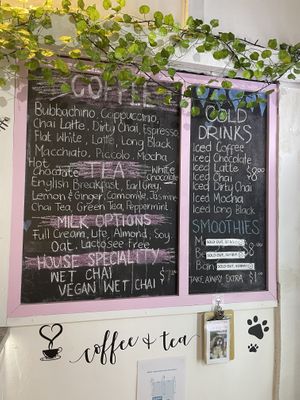 COFFEE
Bubbachino, Cappuccino,
Chai Latte, Dirty Chai, Espresso
Flat White, Latte, Long Black
Macchiato, Piccolo, Mocha
Hot Chocolate
White Chocolate
TEA
English Breakfast, Earl Grey,
Lemon & Ginger, Camomile, Jasmine
Chai Tea, Green Tea, Peppermint
MILK OPTIONS
Full Cream, Lite, Almond, Soy
Oat, Lactose free
HOUSE SPECIALITY
WET CHAI
VEGAN WET CHAI
COLD
DRINKS
Iced Coffee
Iced Chocolate
Iced Latte
Iced Chai
Iced Dirty Chai
Iced Mocha
Iced Long Black
SMOOTHIES
SOLD OUT
SOLD OUT
SOLD OUT
TAKE AWAY EXTRA $1
coffee & tea